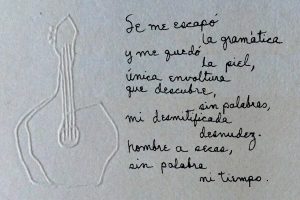 Se me escapó
la gramática
y me quedó
la piel,
única envoltura
que descubre,
sin palabras,
mi desmitificada
desnudez.
Hombre a secas,
sin palabra
ni tiempo.